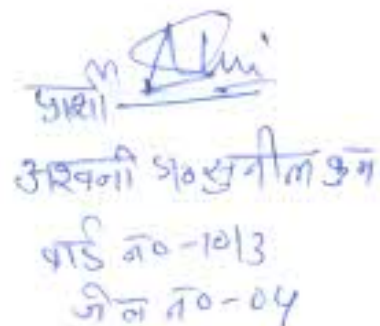 प्रार्थी
अश्वनी पु० सुनील कुमार
वार्ड न०-10/3
जोन न०-04